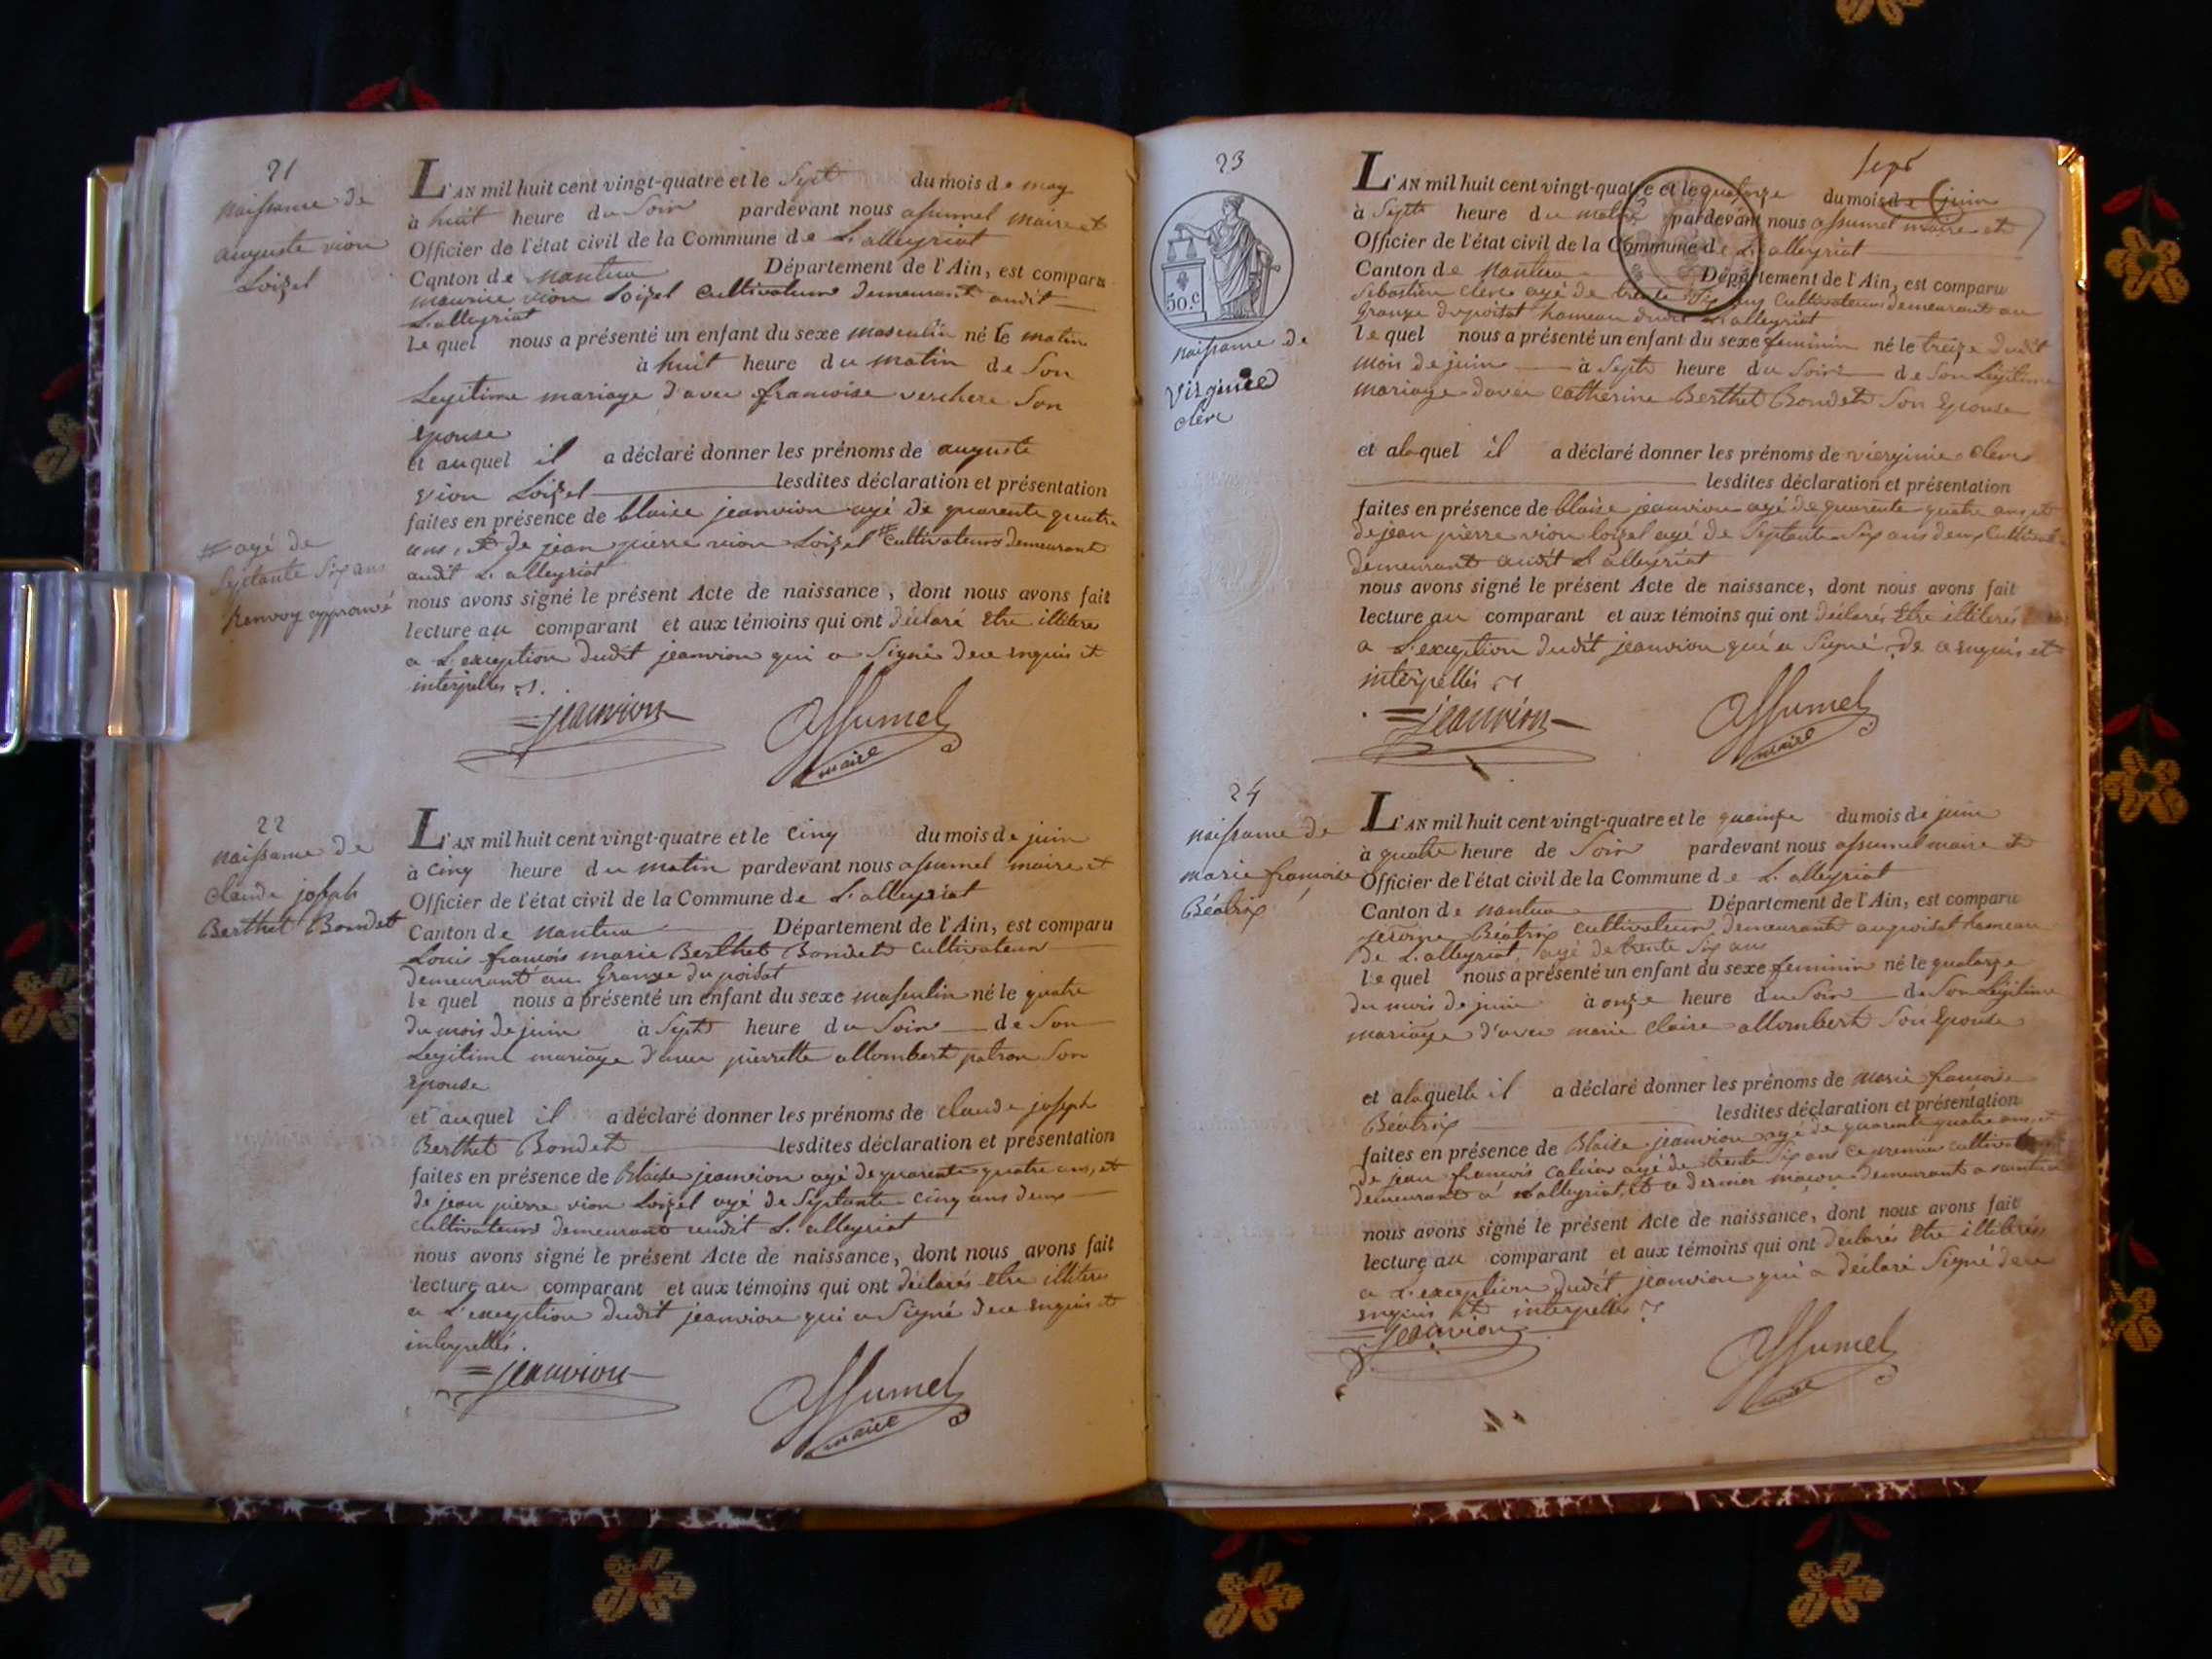 21
naissance de
auguste vion
Loizel
L'AN mil huit cent vingt-quatre et le Sept du mois de may
à huit heure du Soir pardevant nous assumel maire et
Officier de l'état civil de la Commune de L'alleyriat
Canton de nantua Département de l'Ain, est comparu
maurice vion Loizel Cultivateur demeurant audit
L'alleyriat
le quel nous a présenté un enfant du sexe masculin né le matin
à huit heure du matin de Son
Legitime mariage d'avec francoise verchere Son
epouse
et auquel il a déclaré donner les prénoms de auguste
vion Loizel lesdites déclaration et présentation
faites en présence de blaise jeanvion agé de quarente quatre
ans, et de jean pierre vion Loizel # Cultivateurs demeurant
audit L'alleyriat
# agé de
Septante Six ans
Renvoy approuvé
nous avons signé le présent Acte de naissance, dont nous avons fait
lecture au comparant et aux témoins qui ont déclaré Etre illiteres
a L'exception dudit jeanvion qui a Signé de ce enquis et
interpellés
jeanvion
assumel
maire
22
naissance de
Claude joseph
Berthet Bondet
L'AN mil huit cent vingt-quatre et le Cinq du mois de juin
à Cinq heure du matin pardevant nous assumel maire et
Officier de l'état civil de la Commune de L'alleyriat
Canton de nantua Département de l'Ain, est comparu
Louis francois marie Berthet Bondet Cultivateur
demeurant au Grange du poisat
le quel nous a présenté un enfant du sexe masculin né le quatre
du mois de juin à Sept heure du Soir de Son
Legitime mariage d'avec pierrette allombert patron Son
epouse
et auquel il a déclaré donner les prénoms de claude joseph
Berthet Bondet lesdites déclaration et présentation
faites en présence de Blaise jeanvion agé de quarente quatre ans, et
de jean pierre vion Loizel agé de Septante Cinq ans deux
cultivateurs demeurant audit L'alleyriat
nous avons signé le présent Acte de naissance, dont nous avons fait
lecture au comparant et aux témoins qui ont déclarés etre illiteres
a L'exception dudit jeanvion qui a Signé de ce enquis et
interpellés.
jeanvion
assumel
maire
23
50.c
naissance de
Virginie
clerc
sept
L'AN mil huit cent vingt-quatre et le quatorze du mois de juin
à Septe heure du matin pardevant nous assumel maire et
Officier de l'état civil de la Commune de L'alleyriat
Canton de Nantua Département de l'Ain, est comparu
Sebastien clerc agé de trente Six ans Cultivateur demeurant au
Grange du poisat hameau dudit L'alleyriat
le quel nous a présenté un enfant du sexe feminin né le treize dudit
mois de juin à Septe heure du Soir de Son Legitime
mariage d'avec Catherine Berthet Bondet Son Epouse
et alaquel il a déclaré donner les prénoms de vierginie Clerc
lesdites déclaration et présentation
faites en présence de blaise jeanvion agé de quarente quatre ans et
de jean pierre vion loizel agé de Septante Six ans deux Cultivateurs
demeurant audit L'alleyriat
nous avons signé le présent Acte de naissance, dont nous avons fait
lecture au comparant et aux témoins qui ont déclarés Etre illiterés
a L'exception dudit jeanvion qui a Signé de a enquis et
interpellés
jeanvion
assumel
maire
24
naissance de
marie francoise
Béatrix
L'AN mil huit cent vingt-quatre et le queinze du mois de juin
à quatre heure de Soir pardevant nous assumel maire et
Officier de l'état civil de la Commune de L'alleyriat
Canton de nantua Département de l'Ain, est comparu
jerome Béatrix cultivateur demeurant au poisat hameau
de L'alleyriat, agé de trente Six ans
le quel nous a présenté un enfant du sexe feminin né le quatorze
du mois de juin à onze heure du Soir de Son Legitime
mariage d'avec marie claire allombert Son Epouse
et alaquelle il a déclaré donner les prénoms de marie francoise
Béatrix lesdites déclaration et présentation
faites en présence de Blaise jeanvion agé de quarente quatre ans, et
de jean francois agé de trente Six ans ce premier cultivateur
demeurant a L'alleyriat, et ce dernier macon demeurant a nantua
nous avons signé le présent Acte de naissance, dont nous avons fait
lecture au comparant et aux témoins qui ont declarés Etre illiterés
a L'exception dudit jeanvion qui a déclaré Signé de ce
enquis et interpellés
jeanvion
assumel
maire